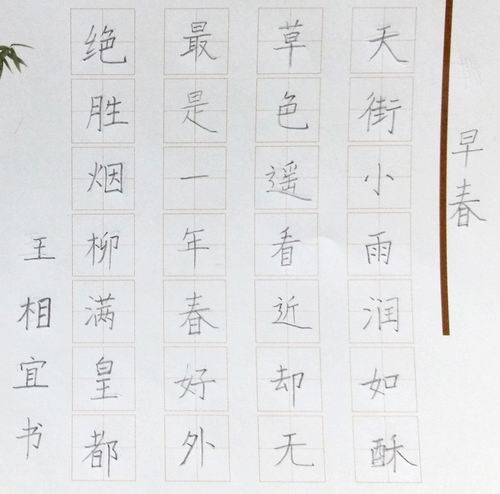 早春
天街小雨润如酥
草色遥看近却无
最是一年春好外
绝胜烟柳满皇都
王相宜书